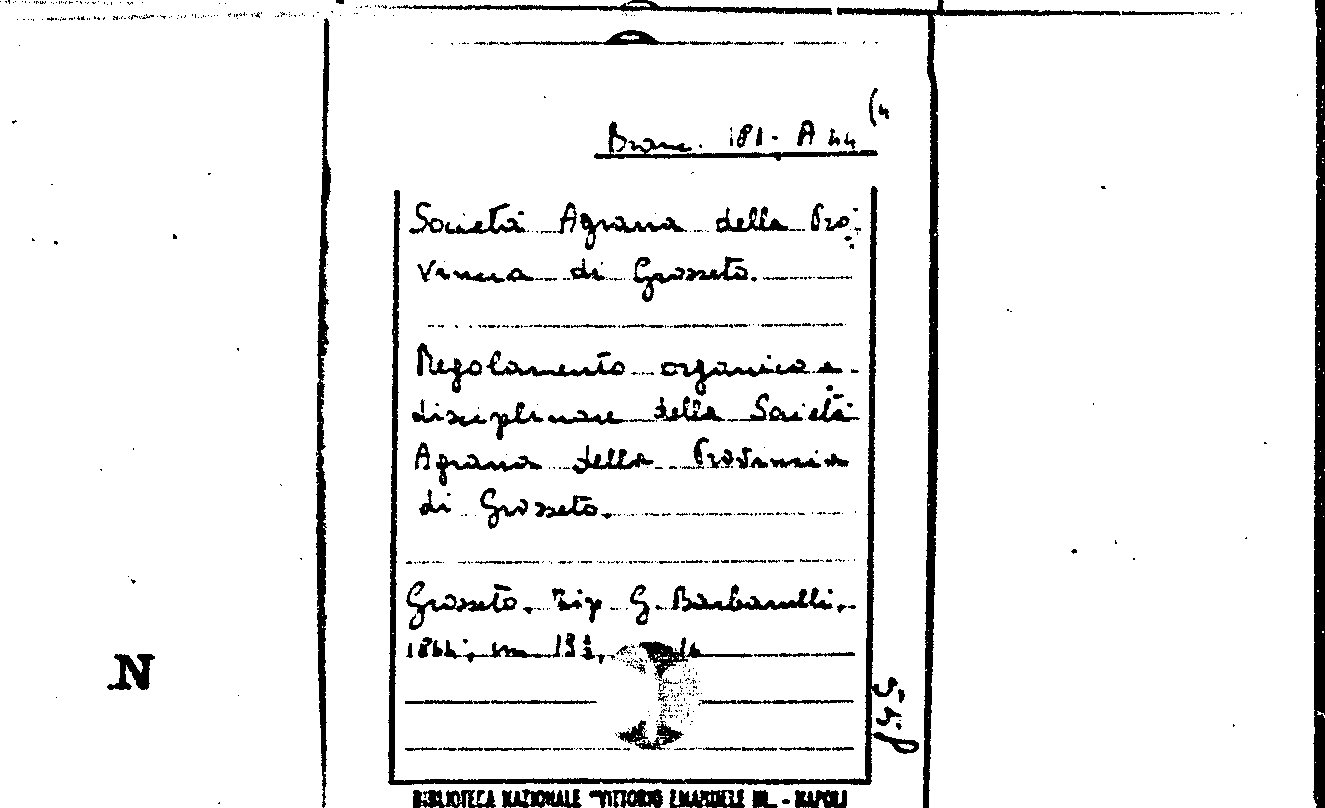 (4
Branc. 181. A 44
Società Agraria della Pro-
vincia di Grosseto.
Regolamento organico e
disciplinare della Società
Agraria della Provincia
di Grosseto.
Grosseto. Tip. G. Barbarulli,
in
.N
BIBLIOTECA NAZIONALE "VITTORIO EMANUELE III. - NAPOLI